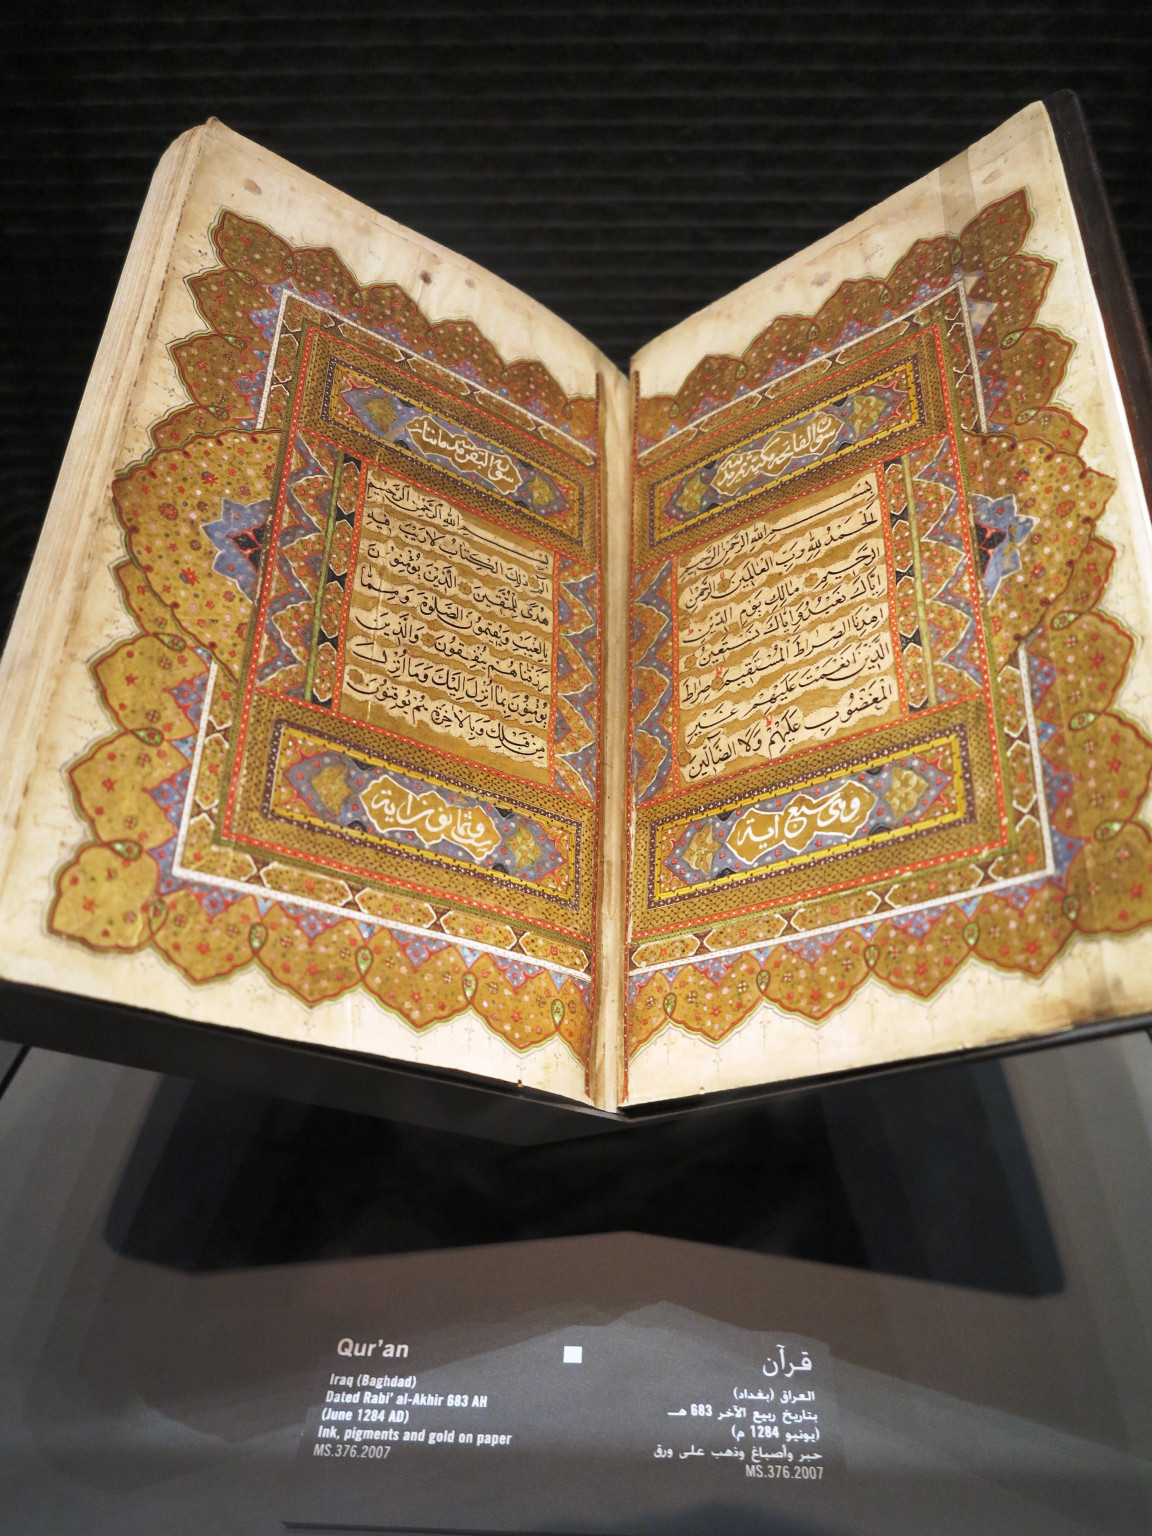 سورة الفاتحة مكية
بسم الله الرحمن الرحيم
الحمد لله رب العالمين الرحمن
الرحيم مالك يوم الدين
اياك نعبد واياك نستعين
اهدنا الصراط المستقيم صراط
الذين انعمت عليهم غير
المغضوب عليهم ولا الضالين
وهي سبع اية
سورة البقرة مائتا
بسم الله الرحمن الرحيم
الم ذلك الكتاب لا ريب فيه
هدى للمتقين الذين يؤمنون
بالغيب ويقيمون الصلوة ومما
رزقناهم ينفقون والذين
يؤمنون بما انزل اليك وما انزل
من قبلك وبالاخرة هم يوقنون
وثمانون اية
Qur'an
Iraq (Baghdad)
Dated Rabi' al-Akhir 683 AH
(June 1284 AD)
Ink, pigments and gold on paper
MS.376.2007
قرآن
العراق (بغداد)
بتاريخ ربيع الآخر 683 هـ
(يونيو 1284 م)
حبر وأصباغ وذهب على ورق
MS.376.2007